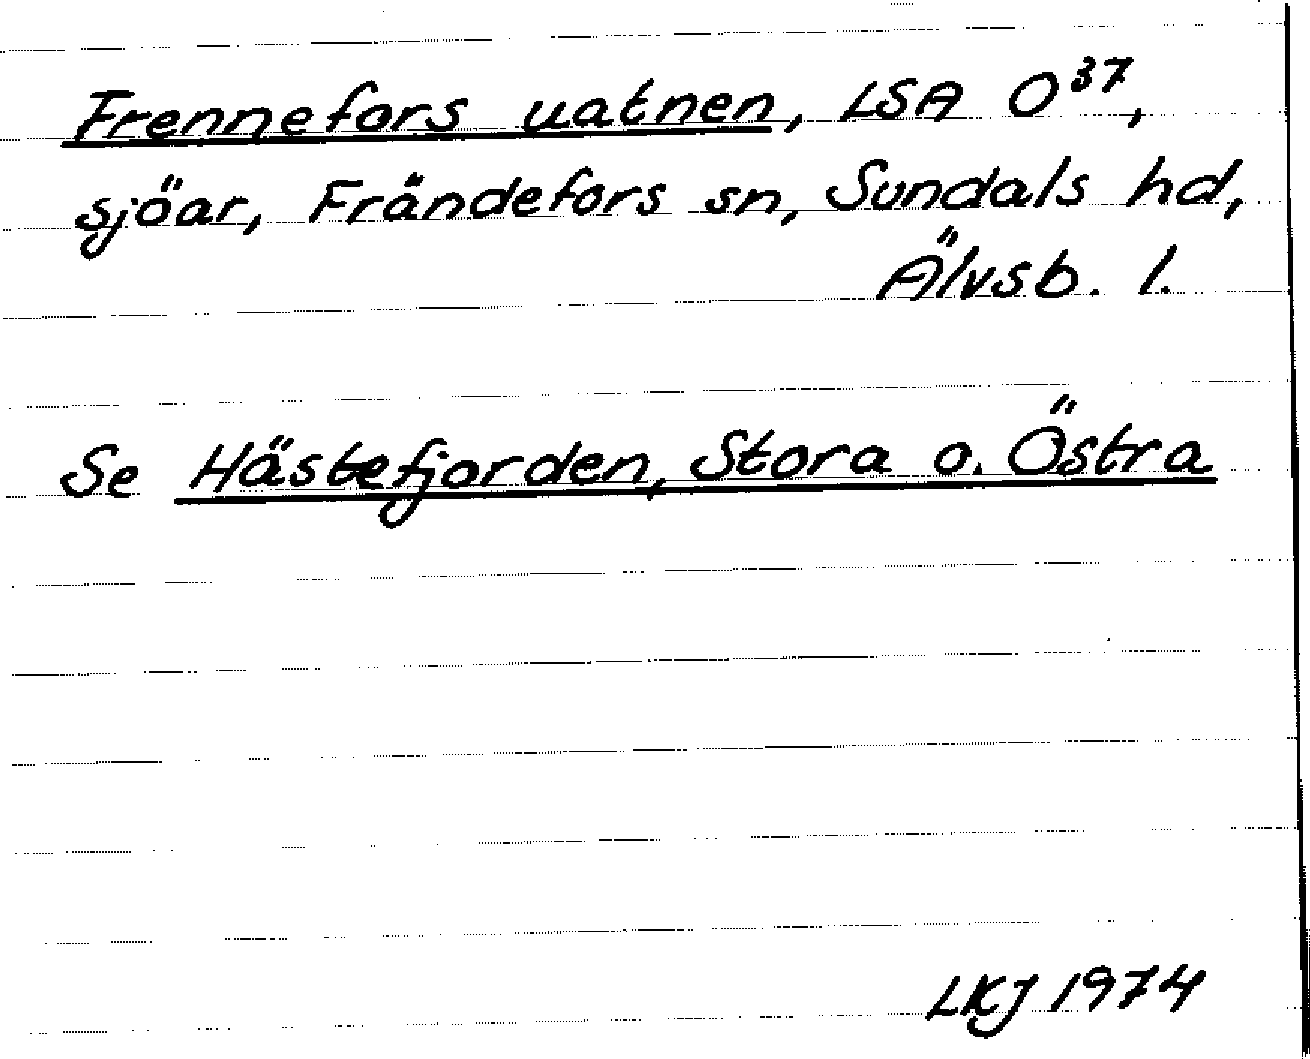 Frennefors uatnen, LSA O³⁷,
sjöar, Frändefors sn, Sundals hd,
Älvsb. l.
Se Hästefjorden, Stora o. Östra
LKJ 1974